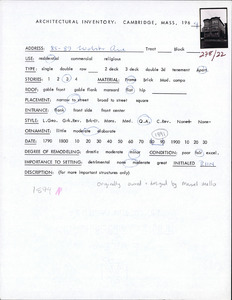 ARCHITECTURAL INVENTORY: CAMBRIDGE, MASS, 196
ADDRESS: 85-87 Tract Block
275/22
USE: residential commercial religious
TYPE: single double row 2 deck 3 deck double 3d tenement Apart
STORIES: 1 2 3 4 MATERIAL: frame brick Mod. compo
ROOF: gable front gable flank mansard flat hip
PLACEMENT: narrow to street broad to street square
ENTRANCE: flank front side front center
STYLE: L.Geo. Grk.Rev. Brkt. Mans. Med. Q.A. C.Rev. None
ORNAMENT: little moderate elaborate (1891)
DATE: 1790 1800 10 20 30 40 50 60 70 80 90 1900 10 20 30
DEGREE OF REMODELING: drastic moderate minor CONDITION: poor fair excel.
IMPORTANCE TO SETTING: detrimental none moderate great INITIALED
DESCRIPTION: (for more important structures only)
Originally owned + designed by
1899